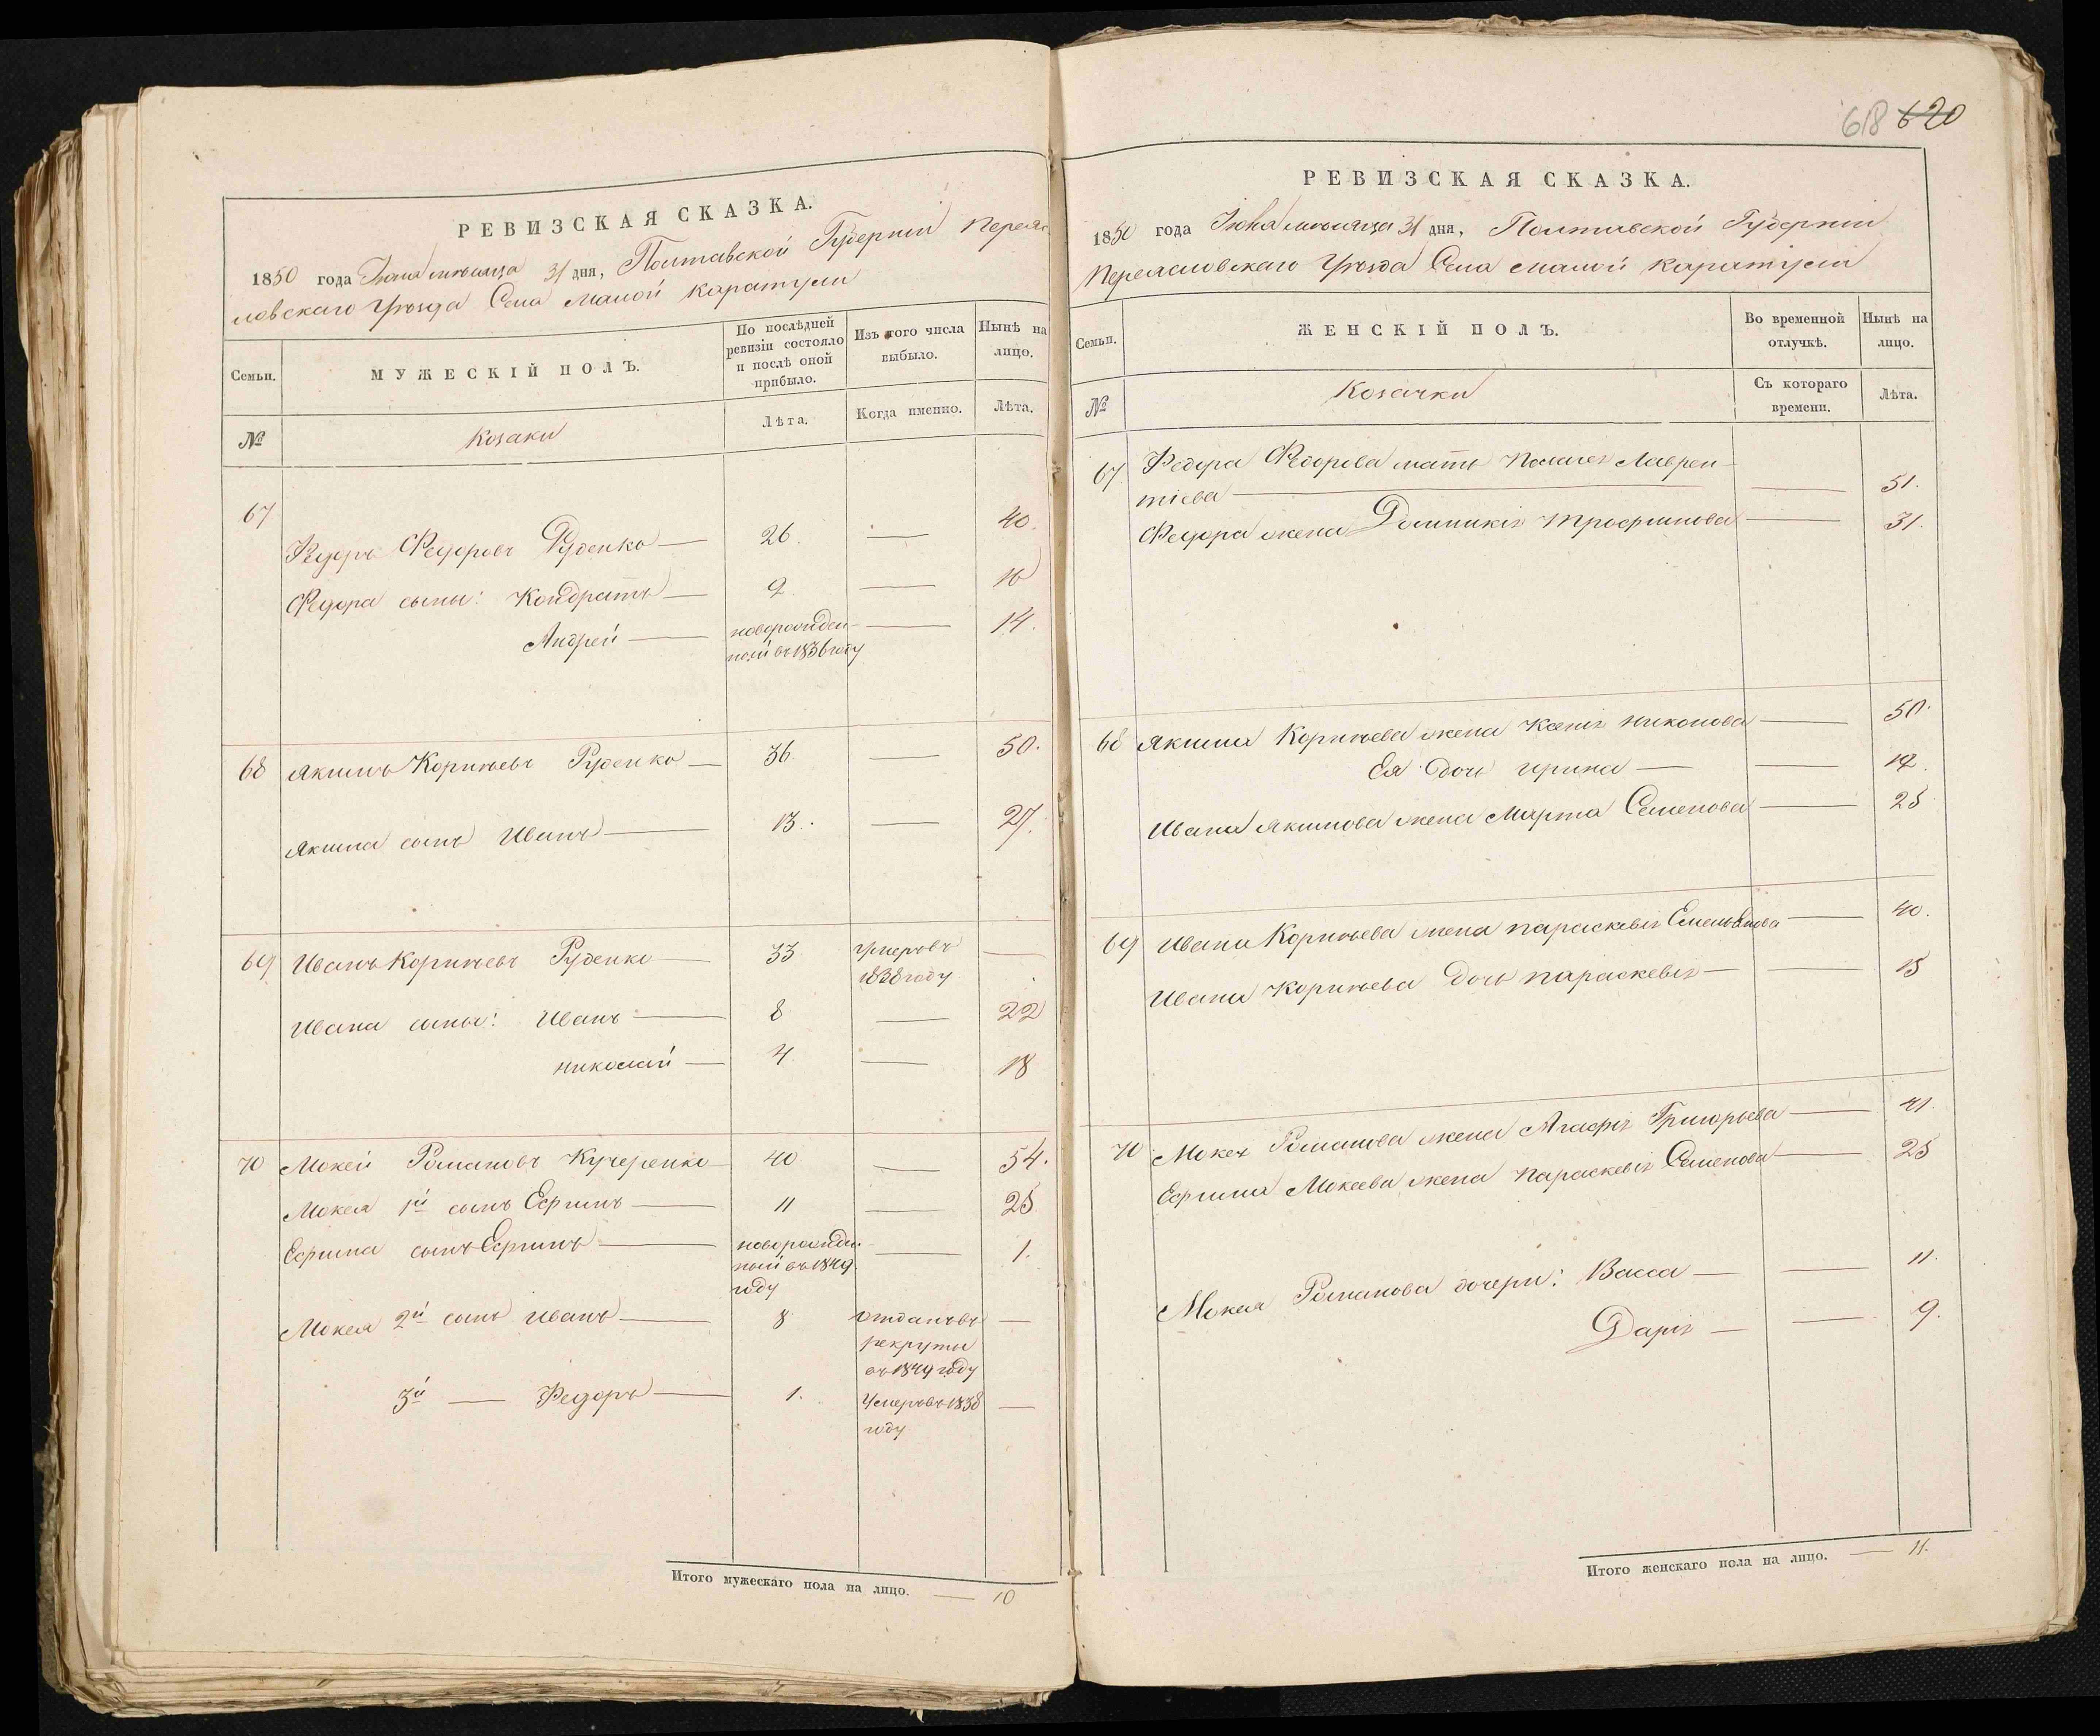 618 620
РЕВИЗСКАЯ СКАЗКА.
1850 года Июня месяца 31 дня, Полтавской Губерніи Переяс
ловскаго Уѣзда Села Малой Каратули
Семьи.
МУЖЕСКІЙ ПОЛЪ.
По послѣдней ревизіи состояло и послѣ оной прибыло.
Изъ того числа выбыло.
Нынѣ на лицо.
№
Козаки
Лѣта.
Когда именно.
Лѣта.
67
Федоръ Федоровъ Руденко — 26. — 40.
Федора сыны: Кондратъ — 2. — 16
Андрей — новорожден- — 14.
ный въ 1836 году
68 Якимъ Корнѣевъ Руденко — 36 — 50.
Якима сынъ Иванъ — 13. — 27.
69 Иванъ Корнѣевъ Руденко — 33 умеръ въ —
1838 году
Ивана сыны: Иванъ — 8 — 22
Николай — 4. — 18
70 Мокей Романовъ Кучеренко — 40 — 54.
Мокея 1й сынъ Ефимъ — 11 — 25
Ефима сынъ Ефимъ — новорожден- — 1.
ный въ 1849
году
Мокея 2й сынъ Иванъ — 8 отданъ въ —
рекруты
въ 1849 году
3й — Федоръ — 1. Умеръ въ 1838 —
году
Итого мужескаго пола на лицо. — 10
РЕВИЗСКАЯ СКАЗКА.
1850 года Июня месяца 31 дня, Полтавской Губерніи
Переясловскаго Уѣзда Села Малой Каратули
Семьи.
ЖЕНСКІЙ ПОЛЪ.
Во временной отлучкѣ.
Нынѣ на лицо.
№
Козачки
Съ котораго времени.
Лѣта.
67 Федора Федорова мать Лаврен-
тіева — — 51.
Федора жена Домникія Трофимова — 31.
68 Якима Корнѣева жена Ксенія Никонова — 50.
Ея дочь Ирина — — 12.
Ивана Якимова жена Марта Семенова — 25
69 Ивана Корнѣева жена Параскевія Емельянова — 40.
Ивана Корнѣева дочь Параскевія — — 15
70 Мокея Романова жена Агафія Григорьева — 41.
Ефима Мокеева жена Параскевія Семенова — 25
Мокея Романова дочери: Васса — — 11.
Дарія — — 9.
Итого женскаго пола на лицо. — 11.